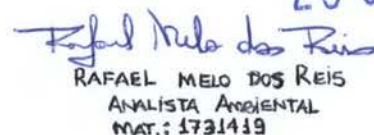 Rafael Melo dos Reis
RAFAEL MELO DOS REIS
ANALISTA AMBIENTAL
MAT.: 1731419